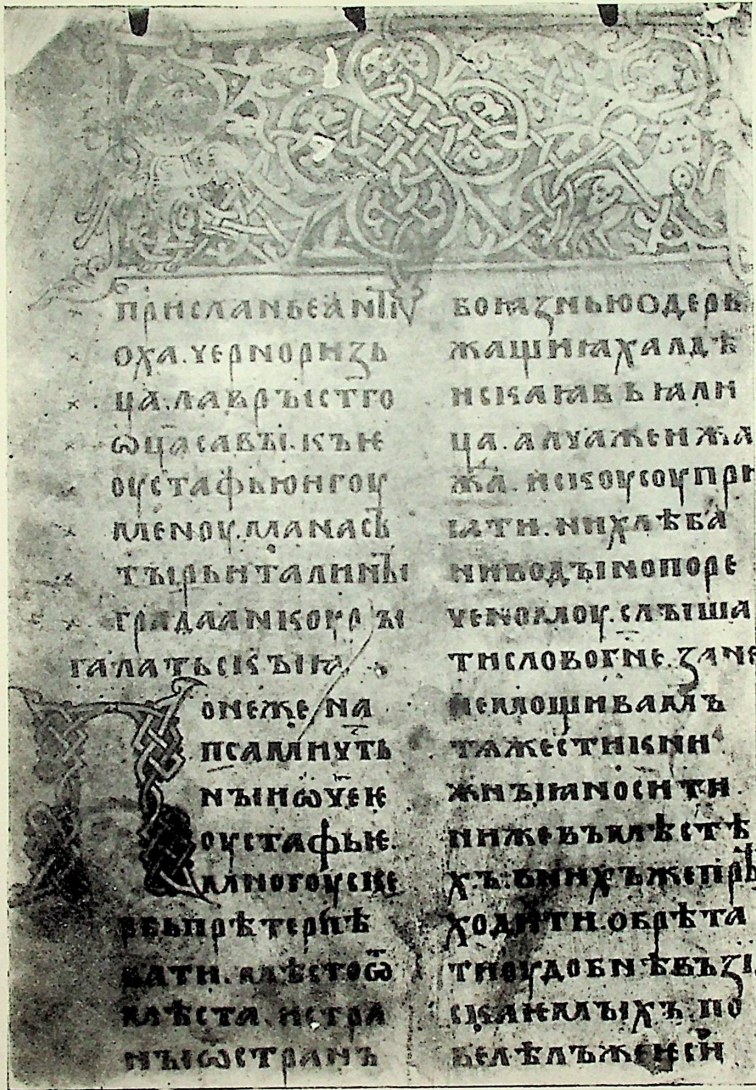 присланьеанти
оха.чернориꙁь
ца.лаврꙑстго
ѡц҃асавꙑ.къѥ
оустафьюигоу
меноу.манасъ
тꙑрьиталинꙑ
градаанкоурꙑ
галатьскꙑꙗ
Понеженаписамичть
нꙑиѡч҃еѥ
оустафьѥ.
многоускр
бьпрѣтерпѣ
вати.мѣстоѿ
мѣста.истра
нꙑѿстранъ
боꙗꙁньюодерь
жащиꙗхалдѣ
искаꙗвьꙗли
ца.алчаженжа
жа.искоусоупри
ꙗти.нихлѣба
ниводꙑнопоре
ченомоу.слꙑша
тисловог҃не.ꙁане
немощивамъ
тѧжестикни
жнꙑꙗноситн
нижевъмѣстѣ
хъ.внихъжепрѣ
ходити.обрѣта
тиоудобнѣвъꙁі
скаѥмꙑхъ.по
велѣлъжеѥси